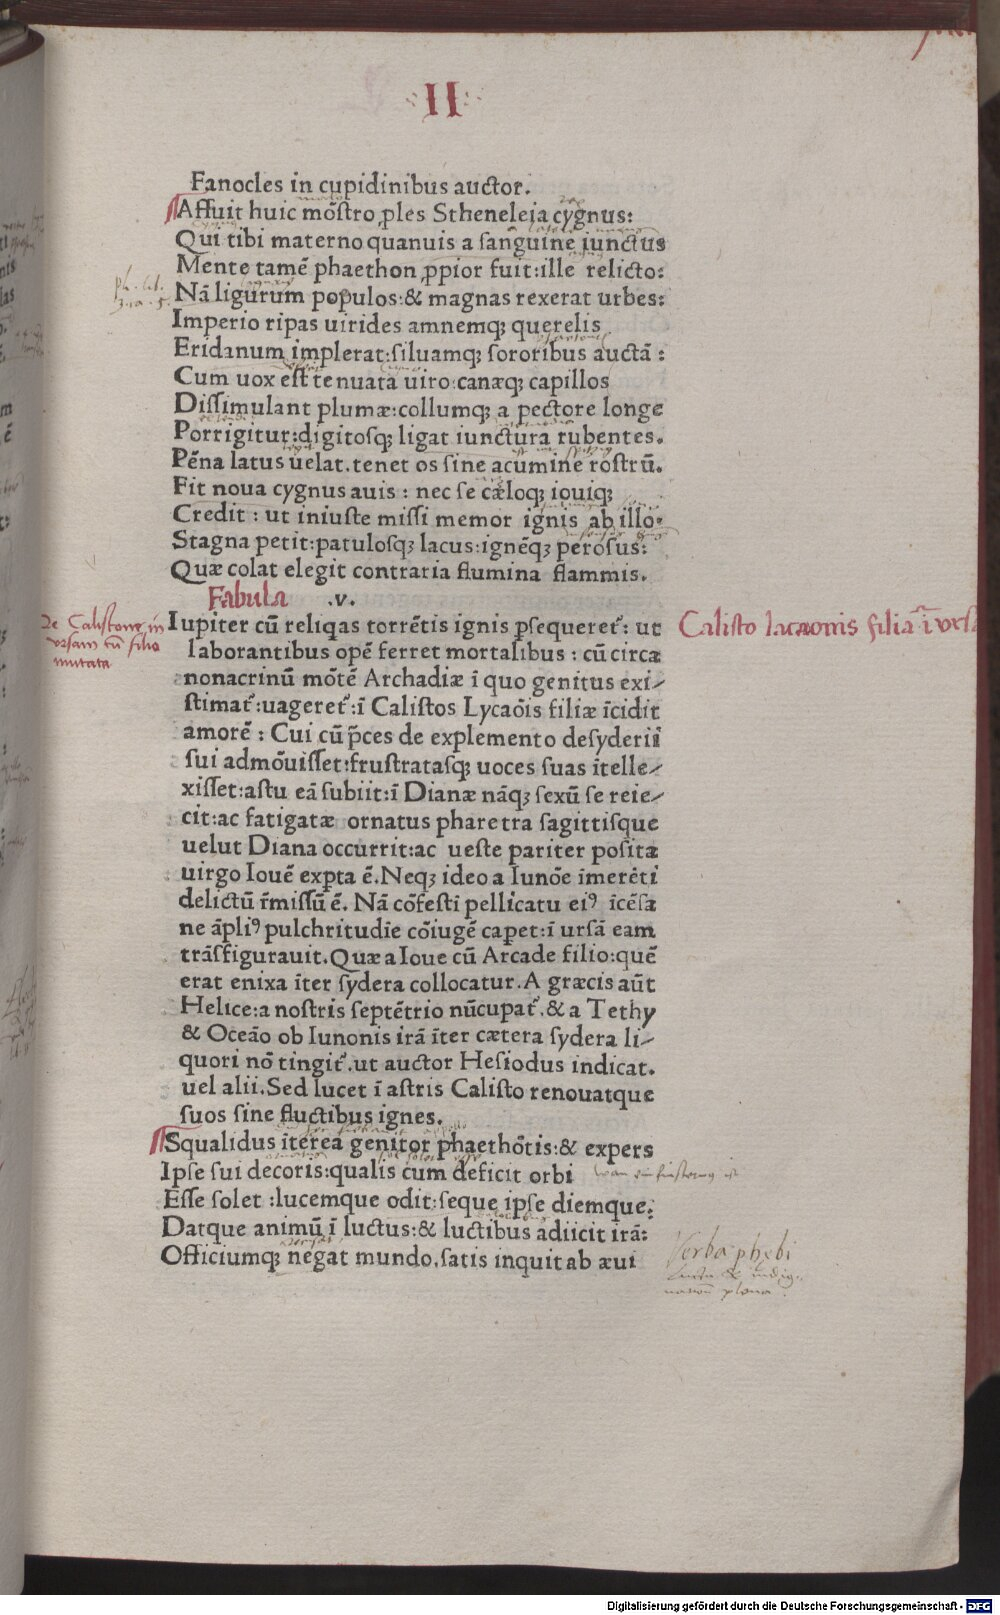 II
Fanocles in cupidinibus auctor.
Affuit huic mõstro ꝓles Stheneleia cygnus:
Qui tibi materno quanuis a sanguine iunctus
Mente tamẽ phaethon ꝓpior fuit:ille relicto:
Nã ligurum populos:& magnas rexerat urbes:
Imperio ripas uirides amnemqꝫ querelis
Eridanum implerat:siluamqꝫ sororibus auctã:
Cum uox est tenuata uiro:canæqꝫ capillos
Dissimulant plumæ:collumqꝫ a pectore longe
Porrigitur:digitosqꝫ ligat iunctura rubentes.
Pẽna latus uelat.tenet os sine acumine rostrũ.
Fit noua cygnus auis: nec se cæloqꝫ iouiqꝫ
Credit: ut iniuste missi memor ignis ab illo.
Stagna petit:patulosqꝫ lacus:ignẽqꝫ perosus:
Quæ colat elegit contraria flumina flammis.
Fabula .v.
De Calistone in
vrsam cũ filio
mutata
Iupiter cũ reliqas torrẽtis ignis psequeret̃: ut
laborantibus opẽ ferret mortalibus: cũ circa
nonacrinũ mõtẽ Archadiæ ĩ quo genitus exi-
stimat̃:uageret̃:ĩ Calistos Lycaõis filiæ ĩcidit
amorẽ: Cui cũ p̃ces de explemento desyderii
sui admõuisset:frustratasqꝫ uoces suas ĩtelle-
xisset:astu eã subiit:ĩ Dianæ nãqꝫ sexũ se reie-
cit:ac fatigatæ ornatus pharetra sagittisque
uelut Diana occurrit:ac ueste pariter posita
uirgo Iouẽ expta ẽ.Neqꝫ ideo a Iunõe ĩmerẽti
delictũ r̃missũ ẽ. Nã cõfesti pellicatu eiꝰ ĩcẽsa
ne ãpliꝰ pulchritudĩe cõiugẽ capet:ĩ ursã eam
trãsfigurauit.Quæ a Ioue cũ Arcade filio:quẽ
erat enixa ĩter sydera collocatur.A græcis aũt
Helice:a nostris septẽtrio nũcupat̃.& a Tethy
& Oceão ob Iunonis irã ĩter cætera sydera li-
quori nõ tingit̃.ut auctor Hesiodus indicat.
uel alii.Sed lucet ĩ astris Calisto renouatque
suos sine fluctibus ignes.
Calisto lacaonis filiã ĩ vrsã
Squalidus ĩterea genitor phaethõtis:& expers
Ipse sui decoris:qualis cum deficit orbi
Esse solet:lucemque odit:seque ipse diemque:
Datque animũ ĩ luctus:& luctibus adiicit irã:
Officiumqꝫ negat mundo.satis inquit ab æui
Verba phębi
plena
Digitalisierung gefördert durch die Deutsche Forschungsgemeinschaft - DFG